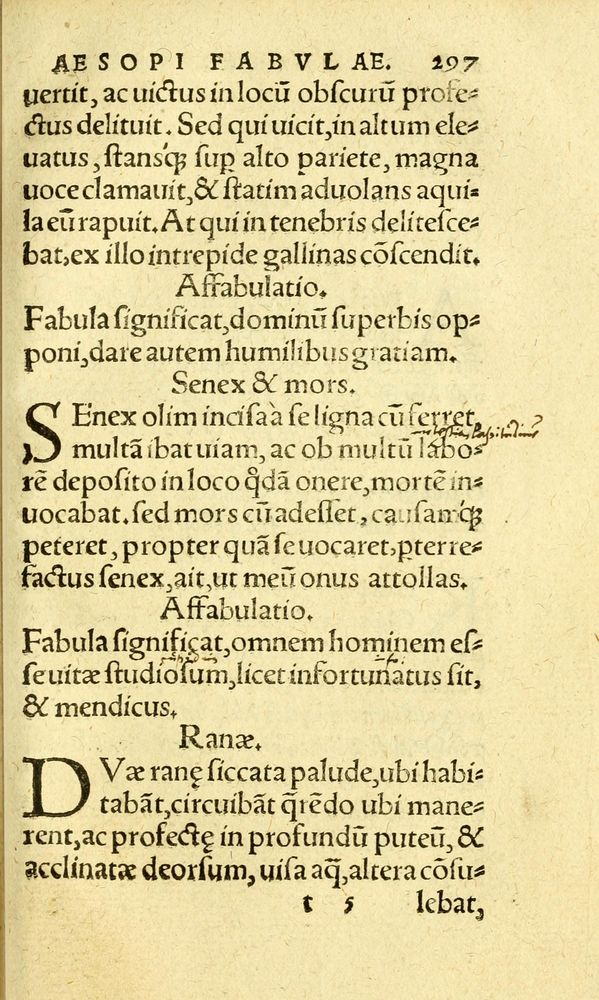 AESOPI FABVLAE. 297
uertit, ac uictus in locū obſcurū profe-
ctus delituit. Sed qui uicit, in altum ele-
uatus, ſtansq; ſup alto pariete, magna
uoce clamauit, & ſtatim aduolans aqui-
la eū rapuit. At qui in tenebris deliteſce-
bat, ex illo intrepide gallinas cōſcendit.
Affabulatio.
Fabula ſignificat, dominū ſuperbis op-
poni, dare autem humilibus gratiam.
Senex & mors.
SEnex olim inciſa à ſe ligna cū ferret,
multā ibat uiam, ac ob multū labo-
rē depoſito in loco q̄dā onere, mortē in-
uocabat. ſed mors cū adeſſet, cauſamq;
peteret, propter quā ſe uocaret, pterre-
factus ſenex, ait, ut meū onus attollas.
Affabulatio.
Fabula ſignificat, omnem hominem eſ-
ſe uitæ ſtudioſum, licet infortunatus ſit,
& mendicus.
Ranæ.
DVæ ranę ſiccata palude, ubi habi-
tabāt, circuibāt q̄rēdo ubi mane-
rent, ac profectę in profundū puteū, &
acclinatæ deorſum, uiſa aq̄, altera cōſu-
t 5 lebat,